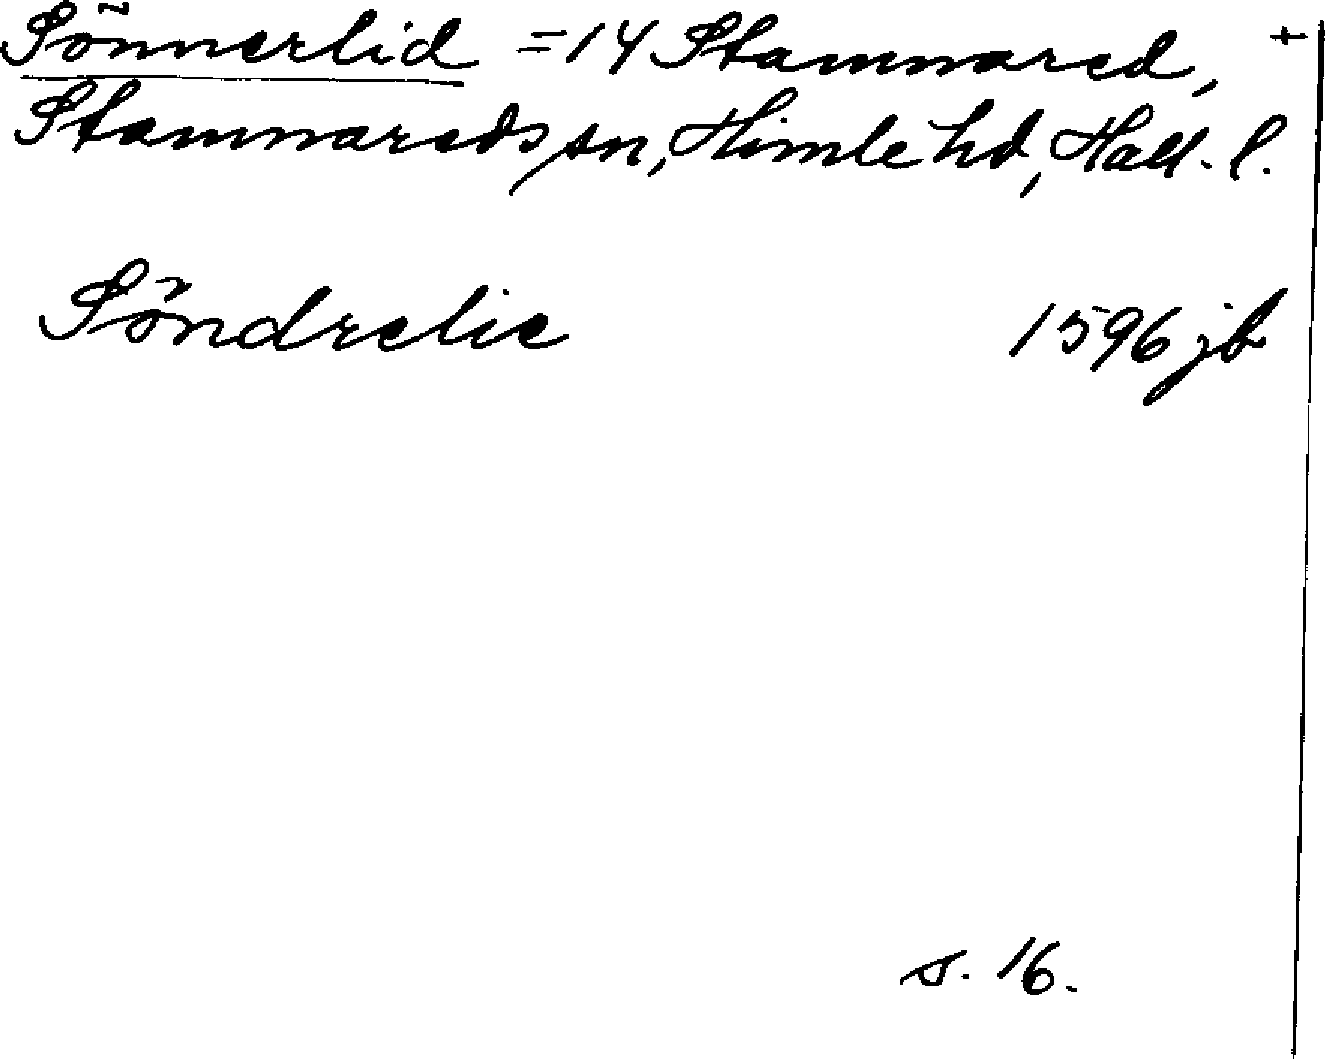 Sönnerlid = 14 Stamnared, +
Stamnareds sn, Himle hd, Hall. l.
Söndrelie 1596 jb
s. 16.